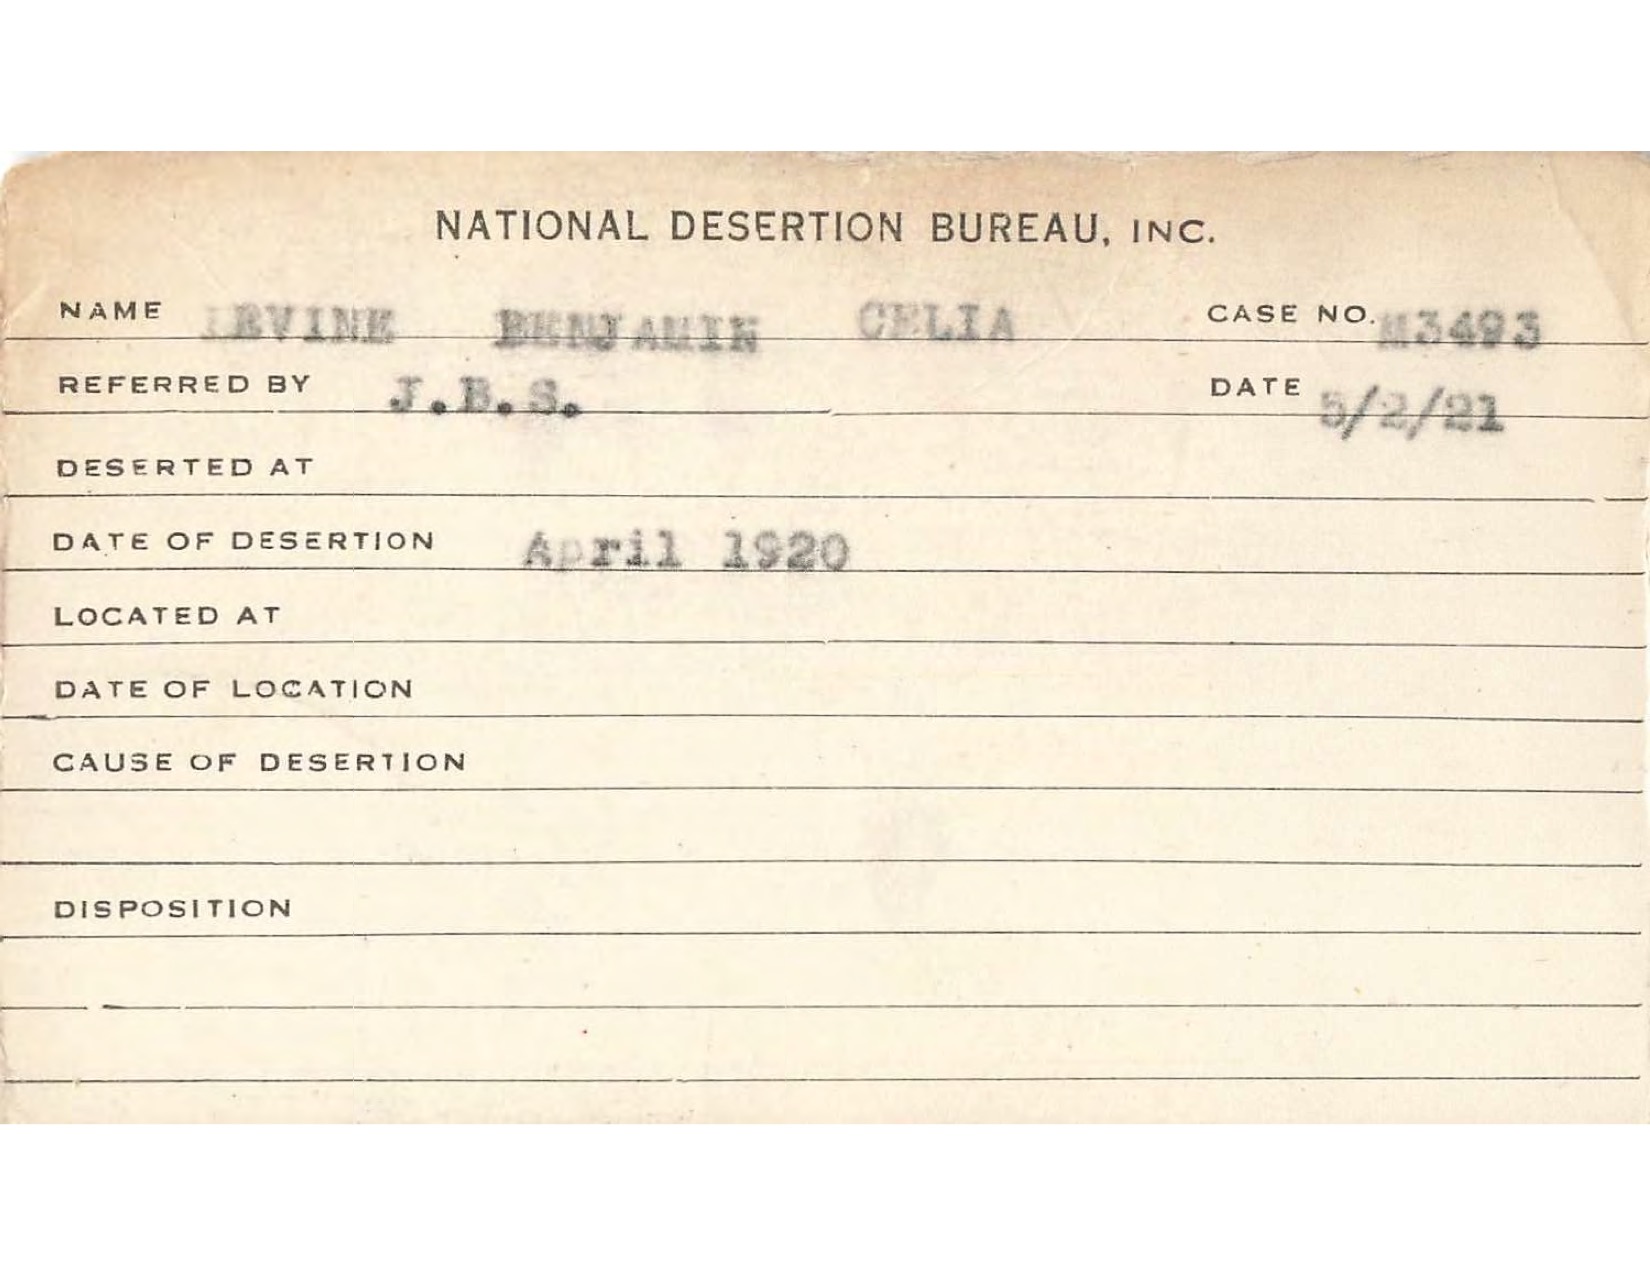 NATIONAL DESERTION BUREAU, INC.
NAME LEVINE BENJAMIN CELIA CASE NO. M3493
REFERRED BY J.B.S. DATE 5/2/21
DESERTED AT
DATE OF DESERTION April 1920
LOCATED AT
DATE OF LOCATION
CAUSE OF DESERTION
DISPOSITION